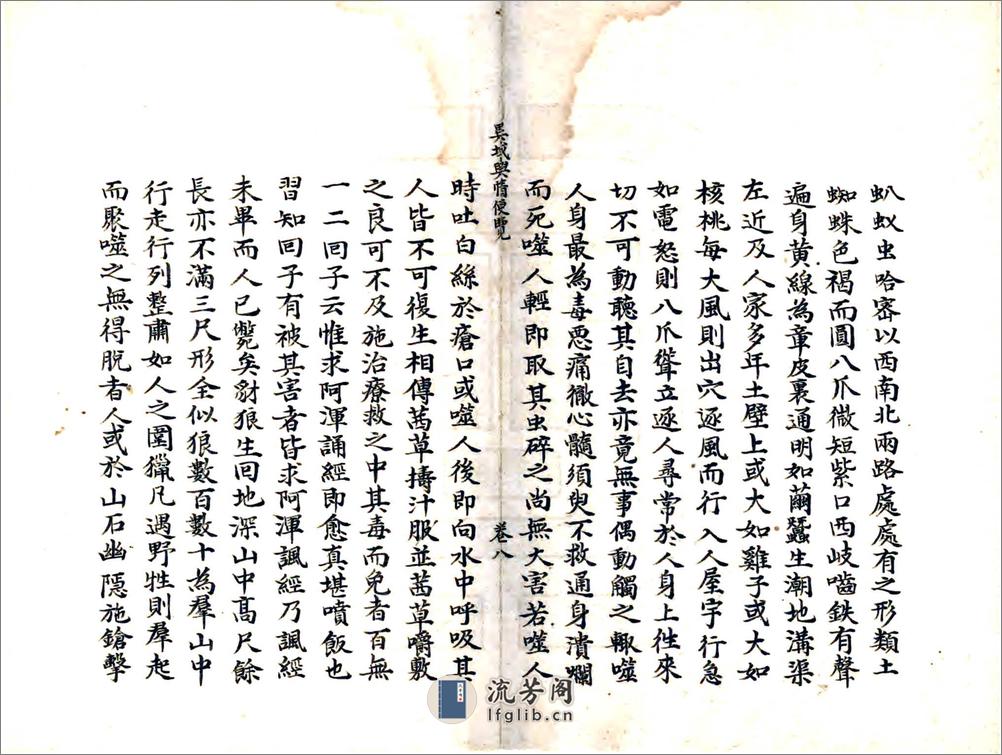 叭蚁虫哈密以西南北兩路處處有之形類土
蜘蛛色褐而圓八爪微短紫口西岐嚙鉄有聲
遍身黃線為章皮裏通明如繭蠶生潮地溝渠
左近及人家多年土壁上或大如雞子或大如
核桃每大風則出穴逐風而行入人屋宇行急
如電怒則八爪聳立逐人尋常於人身上徃來
切不可動聽其自去亦竟無事偶動觸之輙噬
人身最為毒惡痛徹心髓須臾不救通身潰爛
而死噬人輕即取其虫碎之尚無大害若噬人
異域輿情便覽
卷八
時吐白絲於瘡口或噬人後即向水中呼吸其
人皆不可復生相傳茜草擣汁服並茜草嚼敷
之良可不及施治療救之中其毒而免者百無
一二回子云惟求阿渾誦經即愈真堪噴飯也
習知回子有被其害者皆求阿渾諷經乃諷經
未畢而人已斃矣豺狼生回地深山中高尺餘
長亦不滿三尺形全似狼數百數十為羣山中
行走行列整肅如人之圍獵凡遇野牲則羣起
而聚噬之無得脫者人或於山石幽隱施鎗擊
流芳阁
lfglib.cn